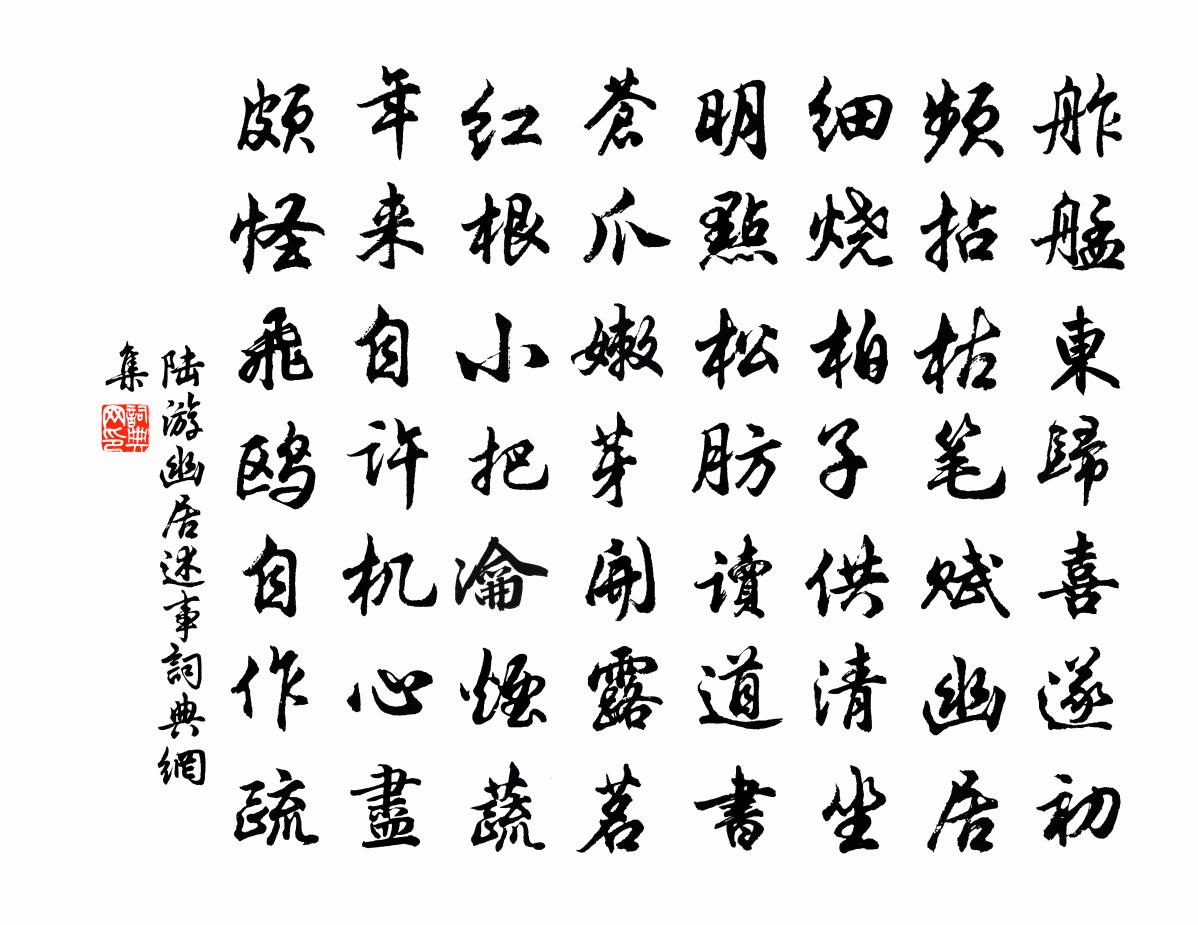 舴艋東歸喜遂初
頻拈枯笔賦幽居
细烧柏子供清坐
明點松肪讀道書
蒼爪嫩芽開露茗
红根小把瀹煙蔬
年来自许机心盡
頗怪飛鸥自作疏
陆游幽居述事詞典網
集
詞典网印